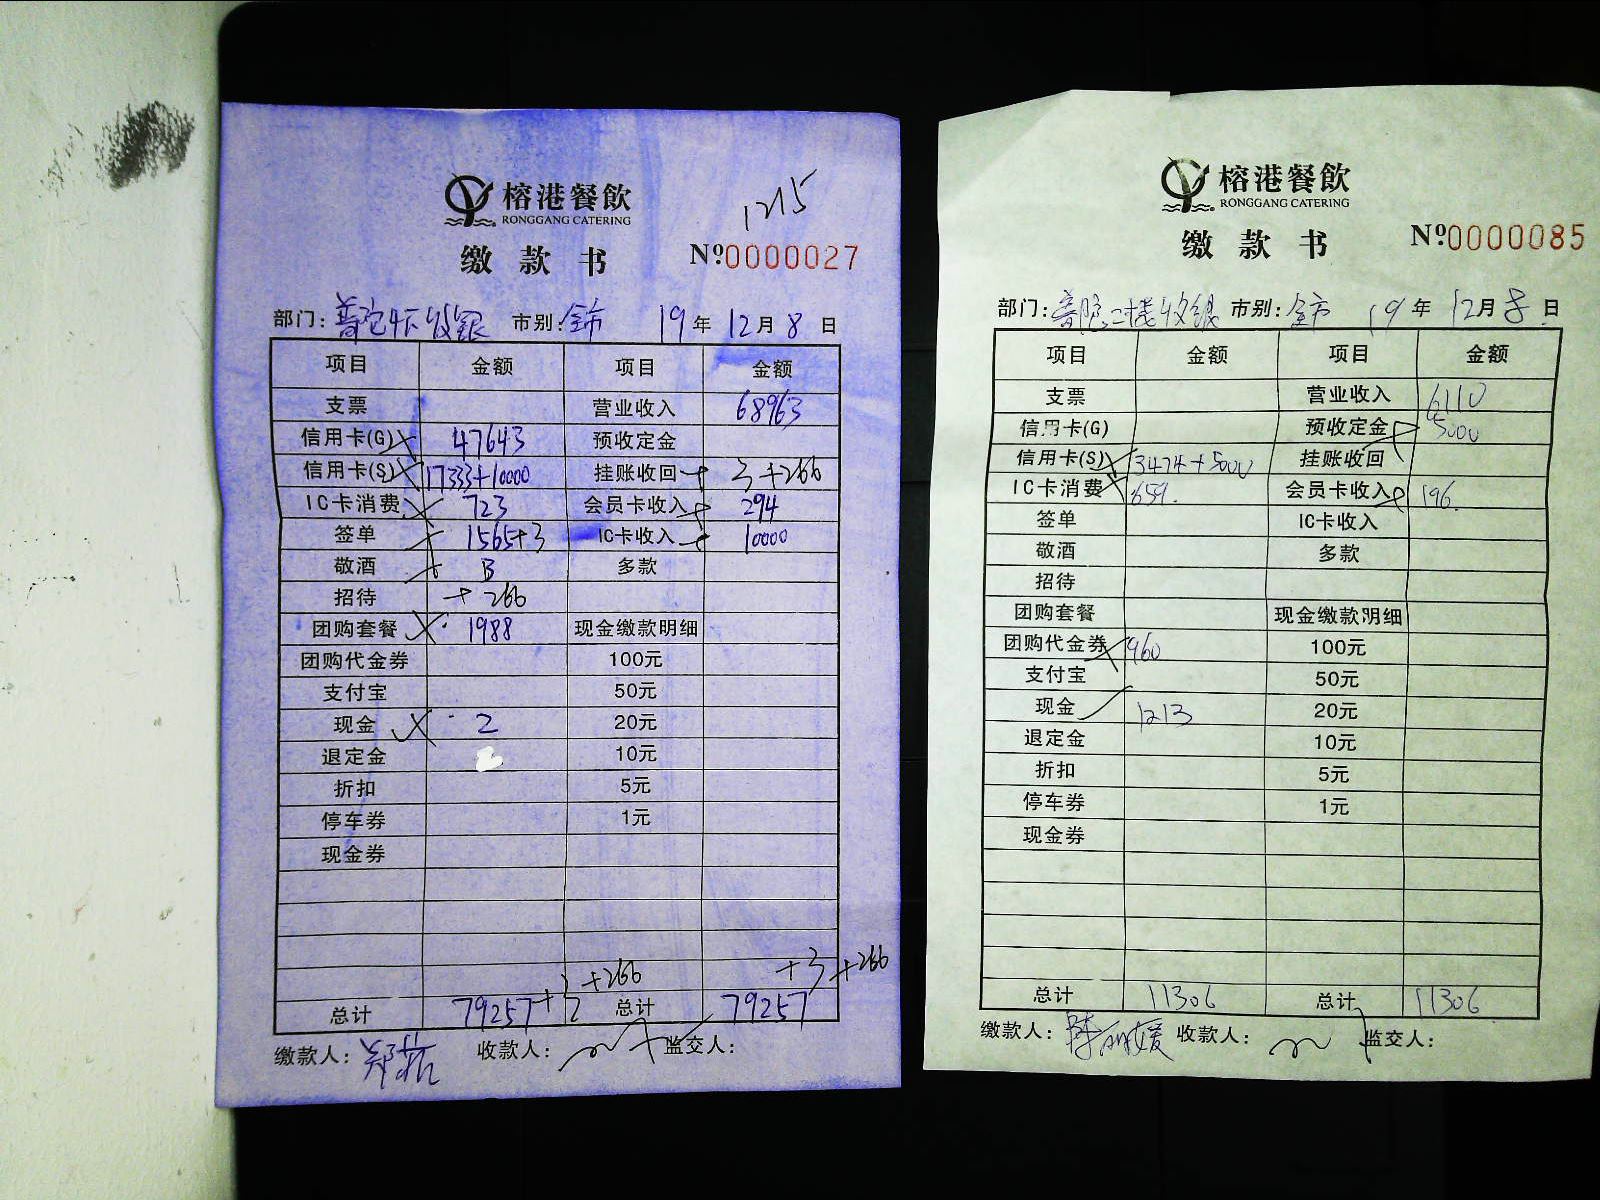 榕港餐飲
RONGGANG CATERING
1215
缴款书
Nº0000027
部门: 市别:全市 19年12月8日
项目 金额 项目 金额
支票 营业收入 68963
信用卡(G) 47643 预收定金
信用卡(S) 17333+10000 挂账收回 3+266
IC卡消费 723 会员卡收入 294
签单 1565+3 IC卡收入 10000
敬酒 多款
招待 +266
团购套餐 1988 现金缴款明细
团购代金券 100元
支付宝 50元
现金 2 20元
退定金 10元
折扣 5元
停车券 1元
现金券
+266 +3 +266
总计 79257+3 总计 79257
缴款人: 收款人: 监交人:
榕港餐飲
RONGGANG CATERING
缴款书
Nº0000085
部门:普陀二楼收银 市别:全市 19年12月8日
项目 金额 项目 金额
支票 营业收入 6110
信用卡(G) 预收定金 5000
信用卡(S) 3474+5000 挂账收回
IC卡消费 659. 会员卡收入 196.
签单 IC卡收入
敬酒 多款
招待
团购套餐 现金缴款明细
团购代金券 960 100元
支付宝 50元
现金 1213 20元
退定金 10元
折扣 5元
停车券 1元
现金券
总计 11306 总计 11306
缴款人: 收款人: 监交人: